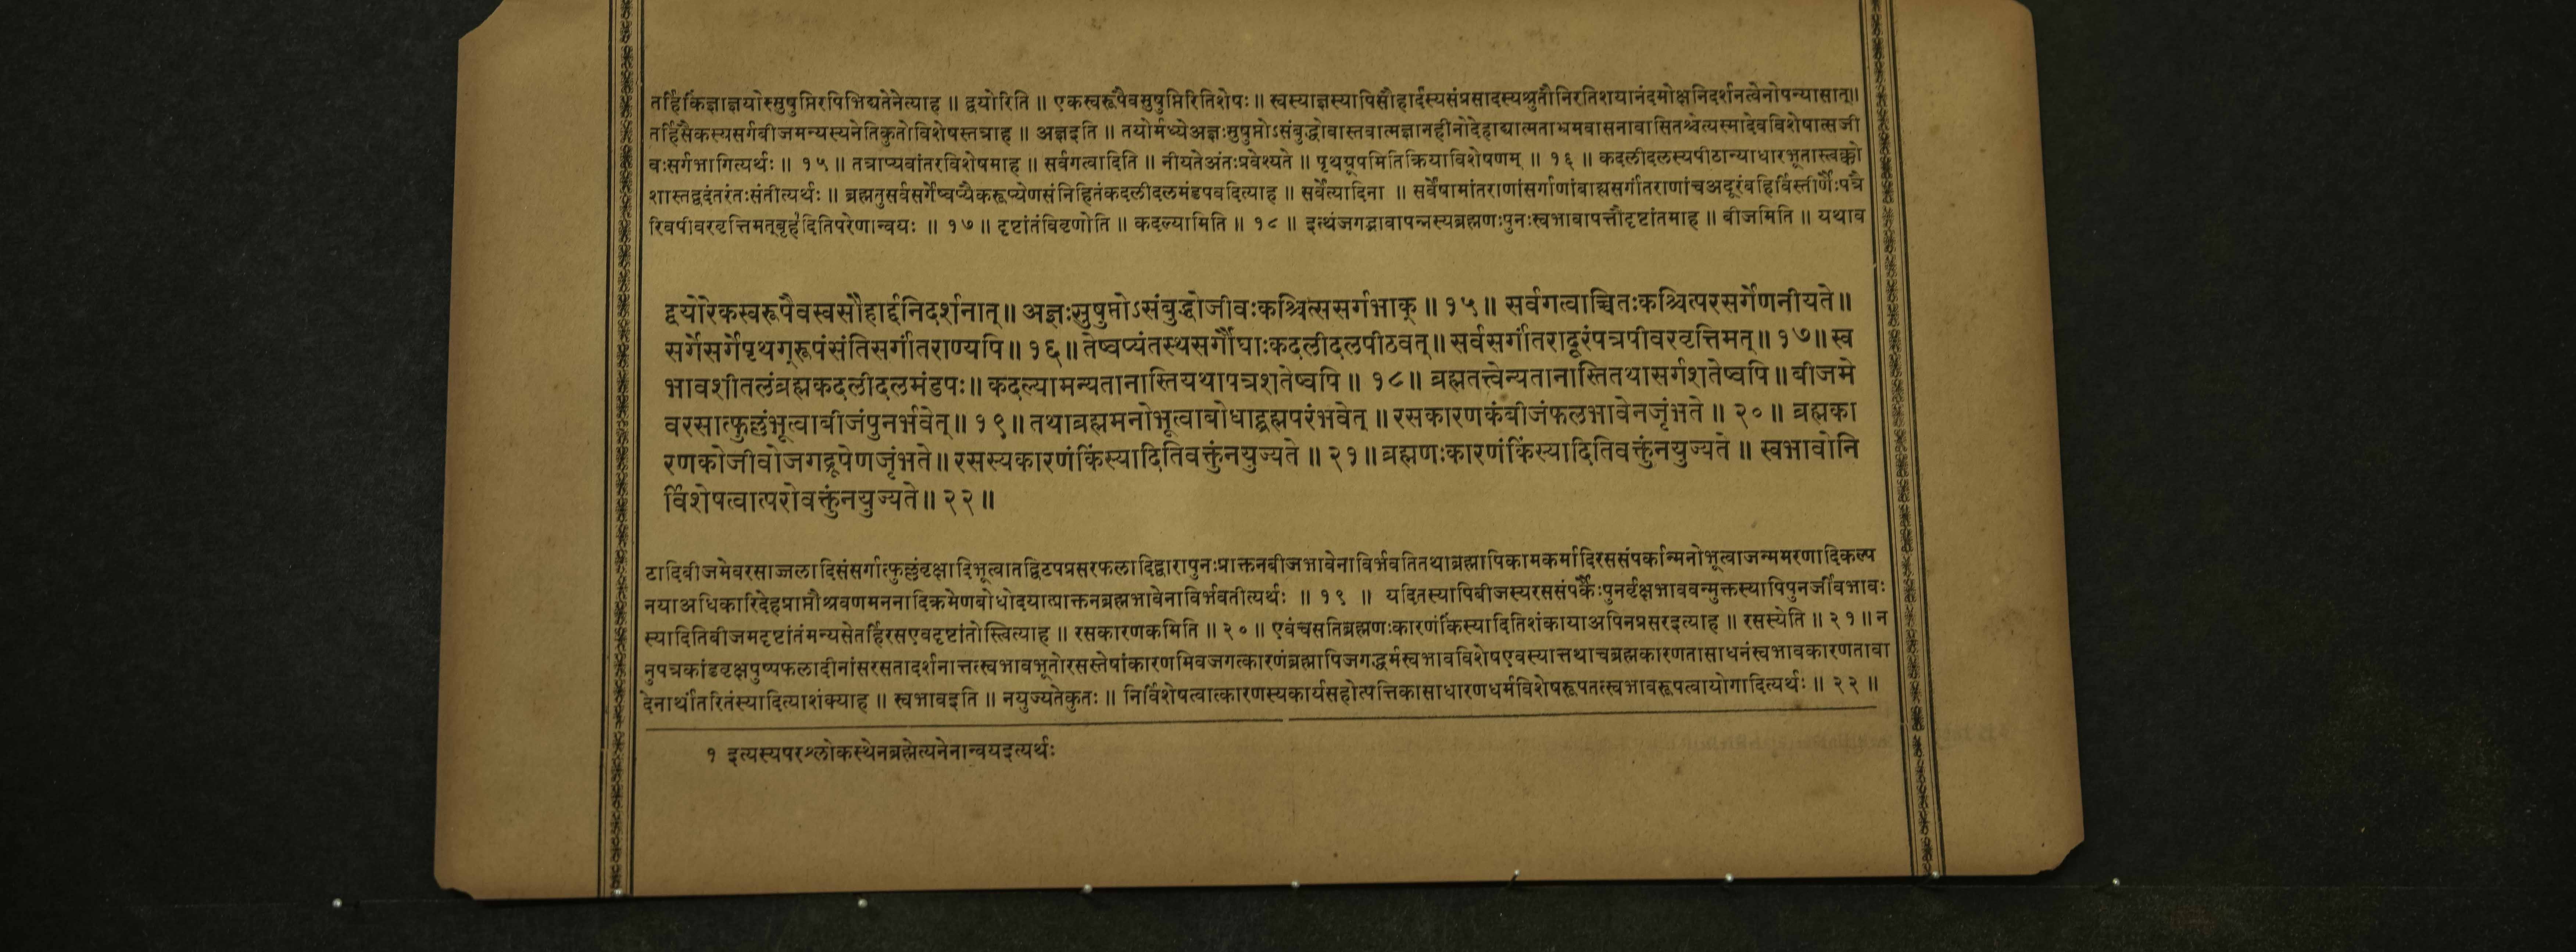 तर्हिकिंज्ञाज्ञयोस्सुषुप्तिरपिभिद्यतेनेत्याह ॥ द्वयोरिति ॥ एकस्वरूपैवसुषुप्तिरितिशेषः ॥ स्वस्याज्ञस्यापिसौहार्दस्यसंप्रसादस्यश्रुतौनिरतिशयानंदमोक्षनिदर्शनत्वेनोपन्यासात्॥
तर्हिसैकस्यसर्गबीजमन्यस्यनेतिकुतोविशेषस्तत्राह ॥ अज्ञइति ॥ तयोर्मध्येअज्ञःसुषुप्तोऽसंबुद्धोवास्तवात्मज्ञानहीनोदेहाद्यात्मताभ्रमवासनावासितश्चेत्यस्मादेवविशेषात्सजी
वःसर्गभागित्यर्थः ॥ १५ ॥ तत्राप्यवांतरविशेषमाह ॥ सर्वगत्वादिति ॥ नीयतेअंतःप्रवेश्यते ॥ पृथग्रूपमितिक्रियाविशेषणम् ॥ १६ ॥ कदलीदलस्यपीठान्याधारभूतास्त्वक्को
शास्तद्वदंतरंतःसंतीत्यर्थः ॥ ब्रह्मतुसर्वसर्गेष्वप्यैकरूप्येणसंनिहितंकदलीदलमंडपवदित्याह ॥ सर्वेत्यादिना ॥ सर्वेषामांतराणांसर्गाणांबाह्यसर्गांतराणांचअदूरंबहिर्विस्तीर्णैःपत्रै
रिवपीवरवृत्तिमत्बृहदितिपरेणान्वयः ॥ १७ ॥ दृष्टांतंविवृणोति ॥ कदल्यामिति ॥ १८ ॥ इत्थंजगद्भावापन्नस्यब्रह्मणःपुनःस्वभावापत्तौदृष्टांतमाह ॥ बीजमिति ॥ यथाव
द्वयोरेकस्वरूपैवस्वसौहार्दनिदर्शनात् ॥ अज्ञःसुषुप्तोऽसंबुद्धोजीवःकश्चित्ससर्गभाक् ॥ १५ ॥ सर्वगत्वाच्चितःकश्चित्परसर्गेणनीयते ॥
सर्गेसर्गेपृथग्रूपंसंतिसर्गांतराण्यपि ॥ १६ ॥ तेष्वप्यंतस्थसर्गौघाःकदलीदलपीठवत् ॥ सर्वसर्गांतरादूरंपत्रपीवरवृत्तिमत् ॥ १७ ॥ स्व
भावशीतलंब्रह्मकदलीदलमंडपः ॥ कदल्यामन्यतानास्तियथापत्रशतेष्वपि ॥ १८ ॥ ब्रह्मतत्त्वेन्यतानास्तितथासर्गशतेष्वपि ॥ बीजमे
वरसात्फुल्लंभूत्वाबीजंपुनर्भवेत् ॥ १९ ॥ तथाब्रह्ममनोभूत्वाबोधाद्ब्रह्मपरंभवेत् ॥ रसकारणकंबीजंफलभावेनजृंभते ॥ २० ॥ ब्रह्मका
रणकोजीवोजगद्रूपेणजृंभते ॥ रसस्यकारणंकिंस्यादितिवक्तुंनयुज्यते ॥ २१ ॥ ब्रह्मणःकारणंकिंस्यादितिवक्तुंनयुज्यते ॥ स्वभावोनि
र्विशेषत्वात्परोवक्तुंनयुज्यते ॥ २२ ॥
टादिबीजमेवरसाज्जलादिसंसर्गात्फुल्लंवृक्षादिभूत्वातद्विटपप्रसरफलादिद्वारापुनःप्राक्तनबीजभावेनाविर्भवतितथाब्रह्मापिकामकर्मादिरससंपर्कान्मनोभूत्वाजन्ममरणादिकल्प
नयाअधिकारिदेहप्राप्तौश्रवणमननादिक्रमेणबोधोदयात्प्राक्तनब्रह्मभावेनाविर्भवतीत्यर्थः ॥ १९ ॥ यदितस्यापिबीजस्यरससंपर्कैःपुनर्वृक्षभाववन्मुक्तस्यापिपुनर्जीवभावः
स्यादितिबीजमदृष्टांतंमन्यसेतर्हिरसएवदृष्टांतोस्त्वित्याह ॥ रसकारणकमिति ॥ २० ॥ एवंचसतिब्रह्मणःकारणंकिंस्यादितिशंकायाअपिनप्रसरइत्याह ॥ रसस्येति ॥ २१ ॥ न
नुपत्रकांडवृक्षपुष्पफलादीनांसरसतादर्शनात्तत्स्वभावभूतोरसस्तेषांकारणमिवजगत्कारणंब्रह्मापिजगद्धर्मस्वभावविशेषएवस्यात्तथाचब्रह्मकारणतासाधनंस्वभावकारणतावा
देनार्थांतरितंस्यादित्याशंक्याह ॥ स्वभावइति ॥ नयुज्यतेकुतः ॥ निर्विशेषत्वात्कारणस्यकार्यसहोत्पत्तिकासाधारणधर्मविशेषरूपतत्स्वभावरूपत्वायोगादित्यर्थः ॥ २२ ॥
१ इत्यस्यपरश्लोकस्थेनब्रह्मेत्यनेनान्वयइत्यर्थः